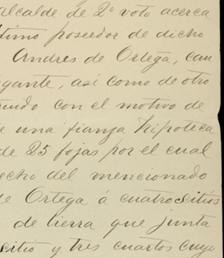 alcalde de 2º voto acerca
timo poseedor de dicho
Andres de Ortega, cau
gante, así como de otro
tuido con el motivo de
e una fianza hipoteca
de 25 fojas por el cual
echo del mencionado
de Ortega á cuatro sitios
de tierra que junta
sitio y tres cuartos cuyo